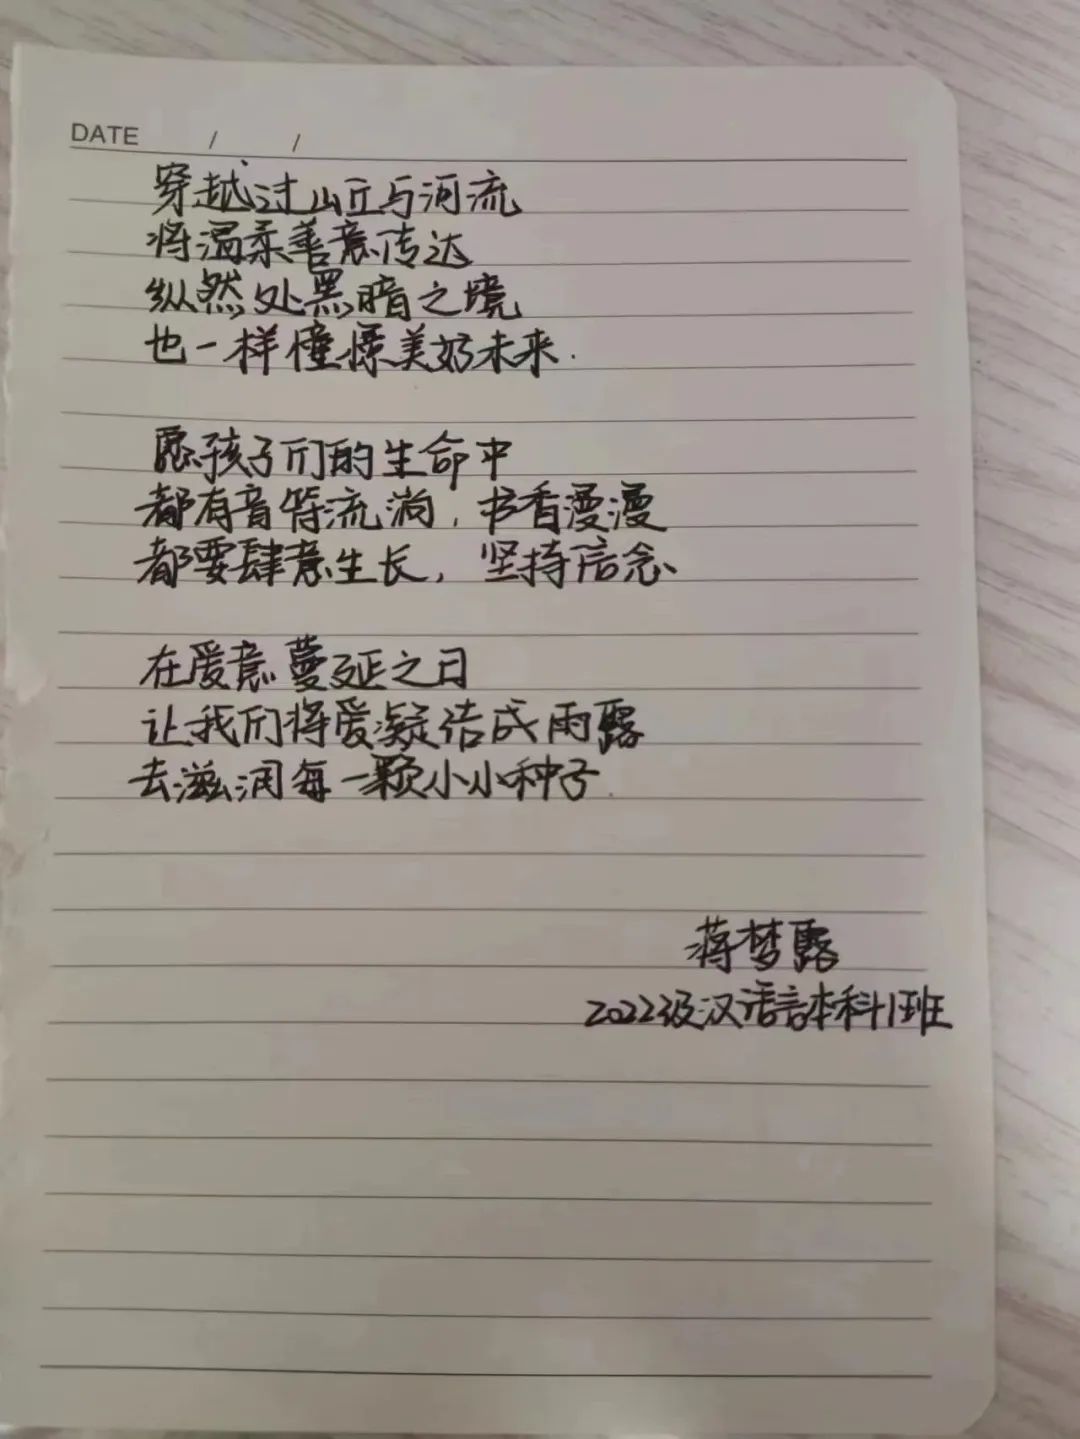 DATE / /
穿越过山丘与河流
将温柔善意传达
纵然处黑暗之境
也一样憧憬美好未来.
愿孩子们的生命中
都有音符流淌,书香漫漫
都要肆意生长,坚持信念
在爱意蔓延之日
让我们将爱凝结成雨露
去滋润每一颗小小种子.
蒋梦露
2022级汉语言本科1班